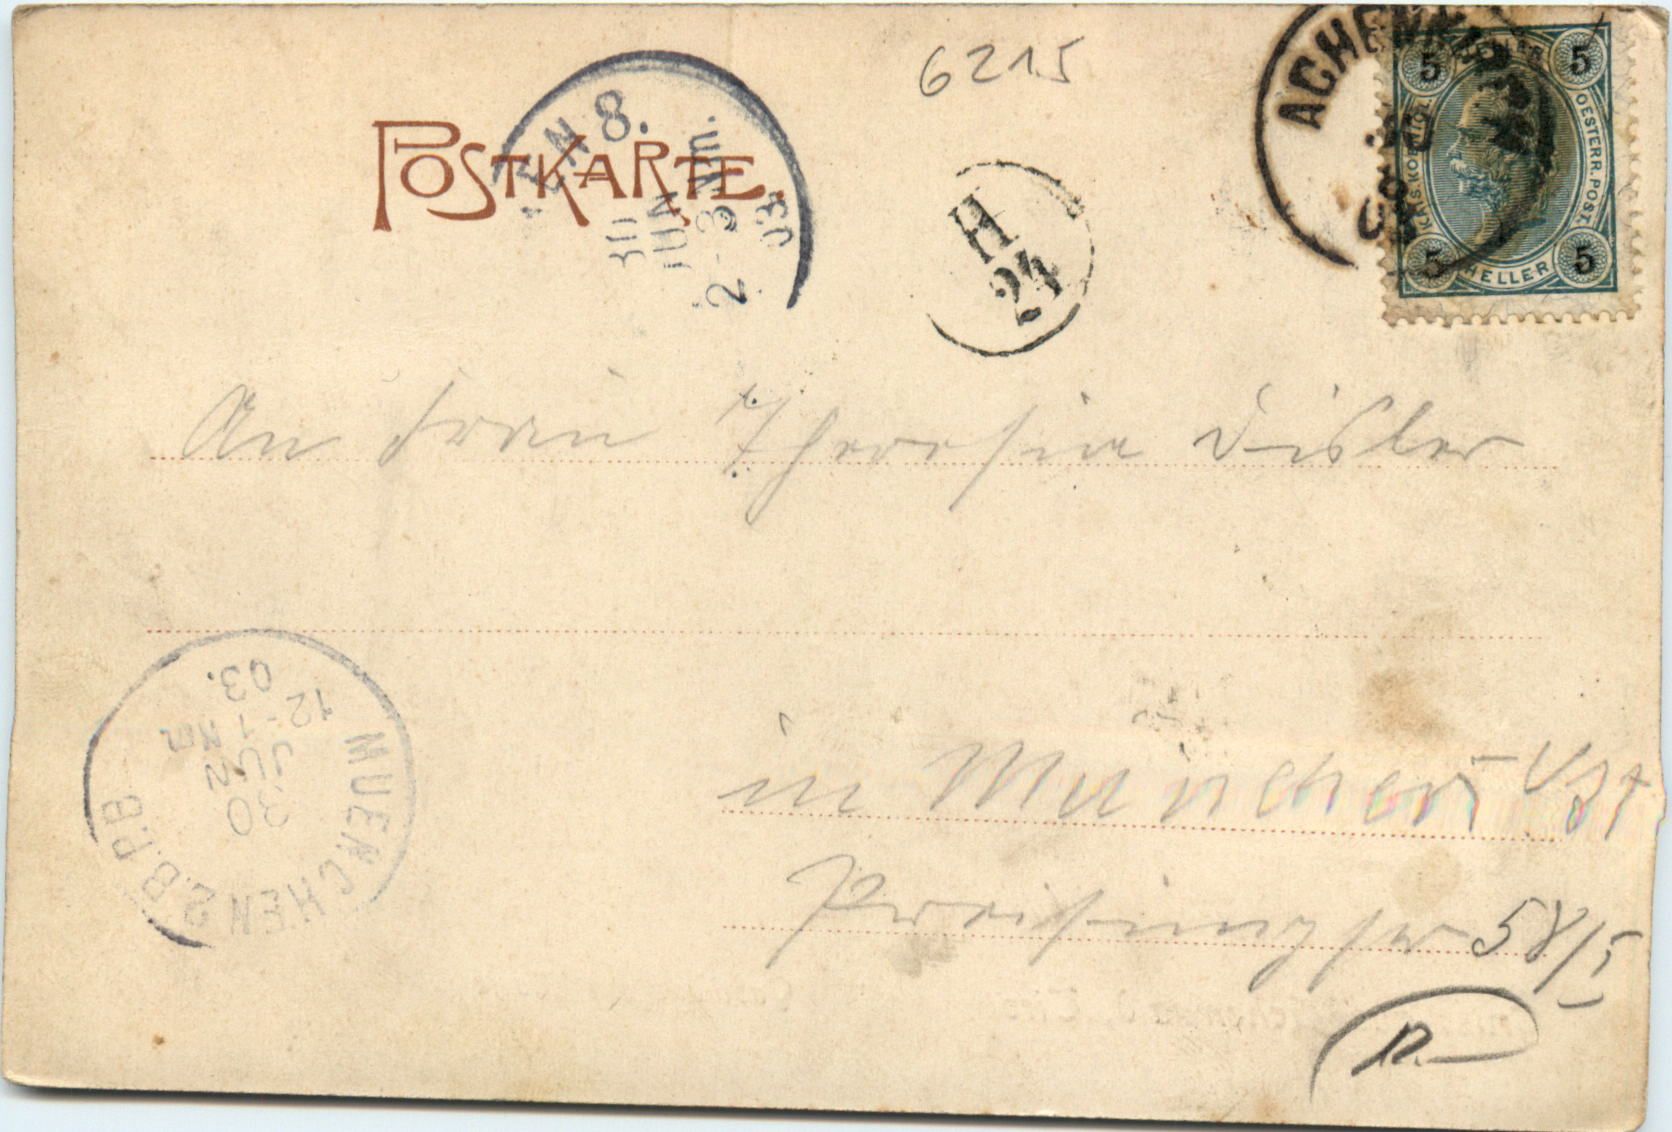 6215
POSTKARTE.
8.
30
JUN
2-3 Nm.
03
H
24
ACHENKIRCH
03
5 5
KAIS. KÖNIGL.
OESTERR. POST.
5 HELLER 5
An Frau Theresia Disler
in München Ost
Preisingstr 58/I
MUENCHEN 2 B.P.B
30
JUN
12-1 Nm
03.
12.